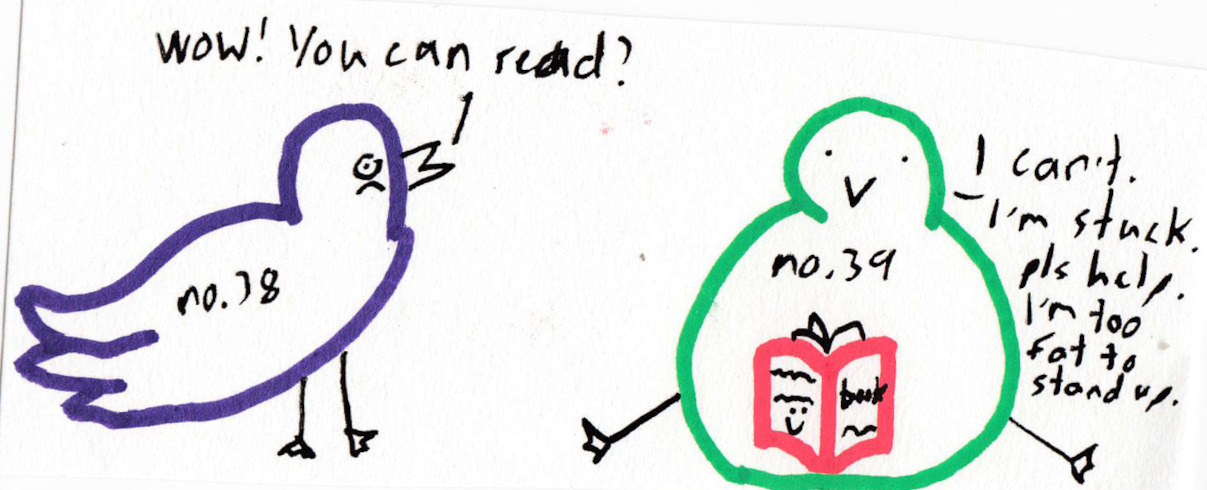 wow! You can read?
no.38
I can't.
I'm stuck.
pls help.
I'm too
fat to
stand up.
no.39
book